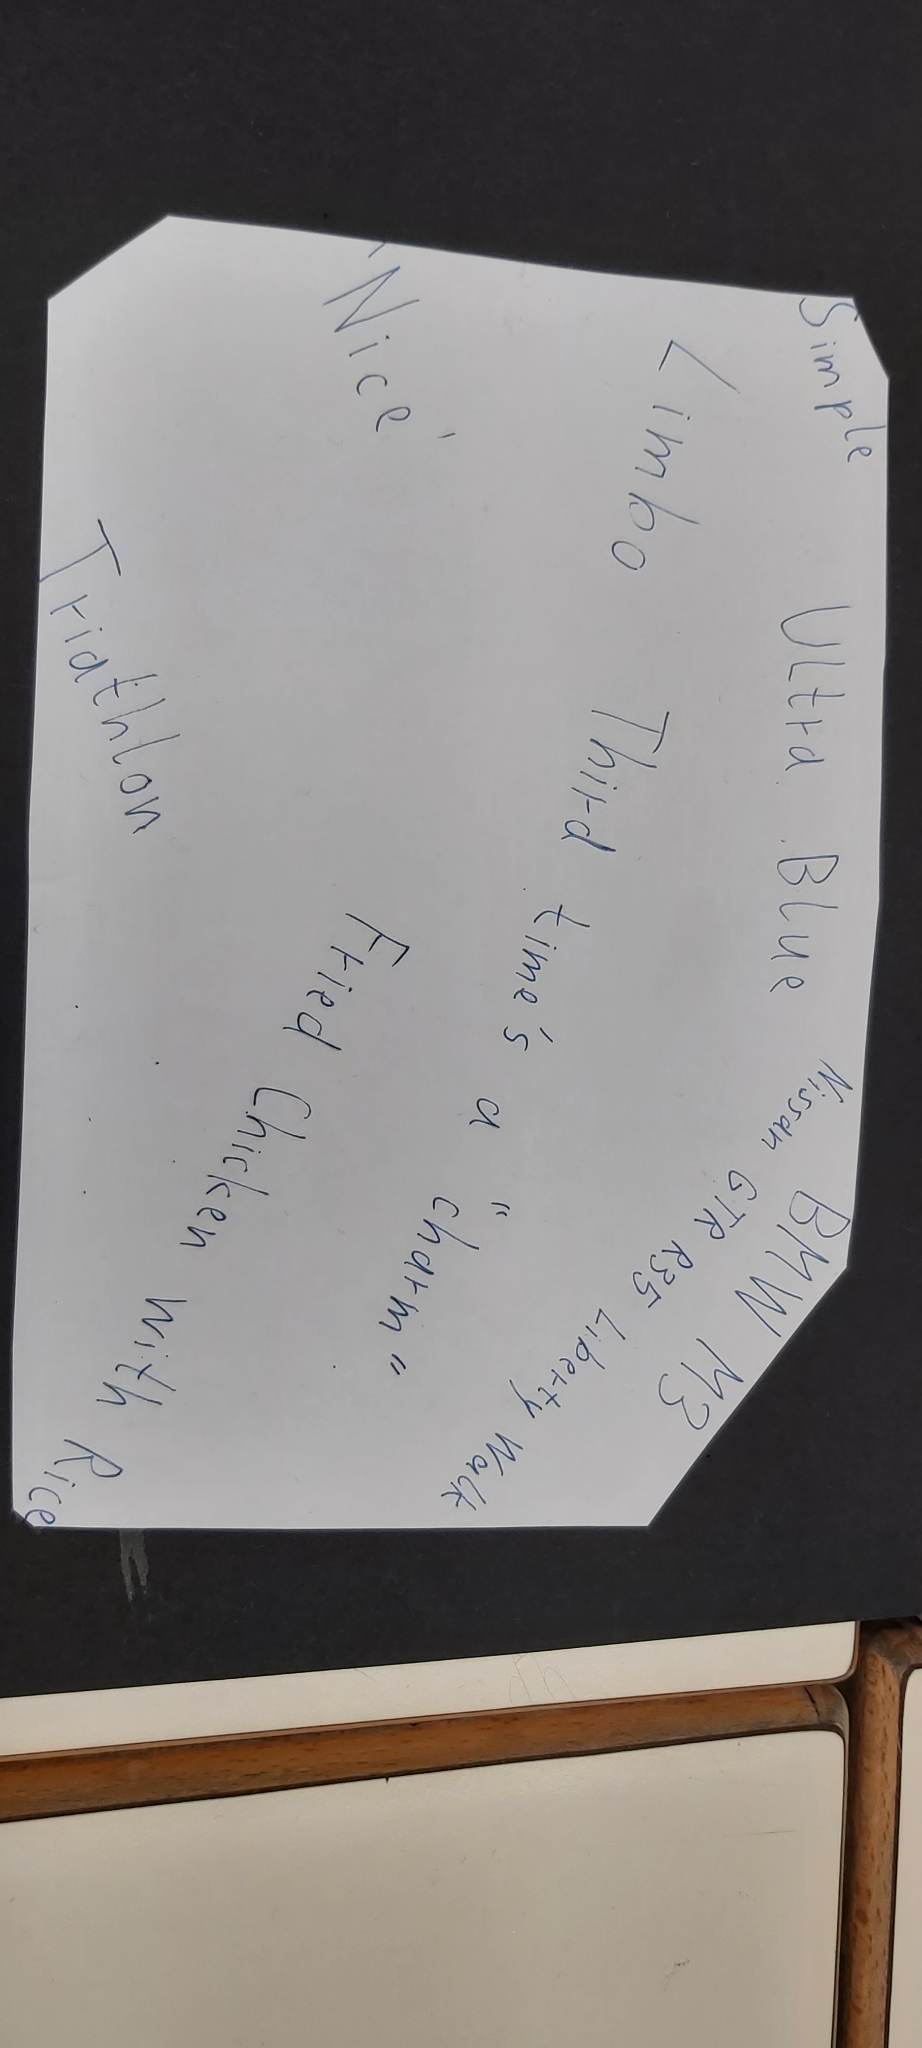 Simple
Ultra Blue
BMW M3
Nissan GTR R35 Liberty Walk
Limbo
Third time's a "charm"
'Nice'
Fried Chicken with Rice
Triathlon